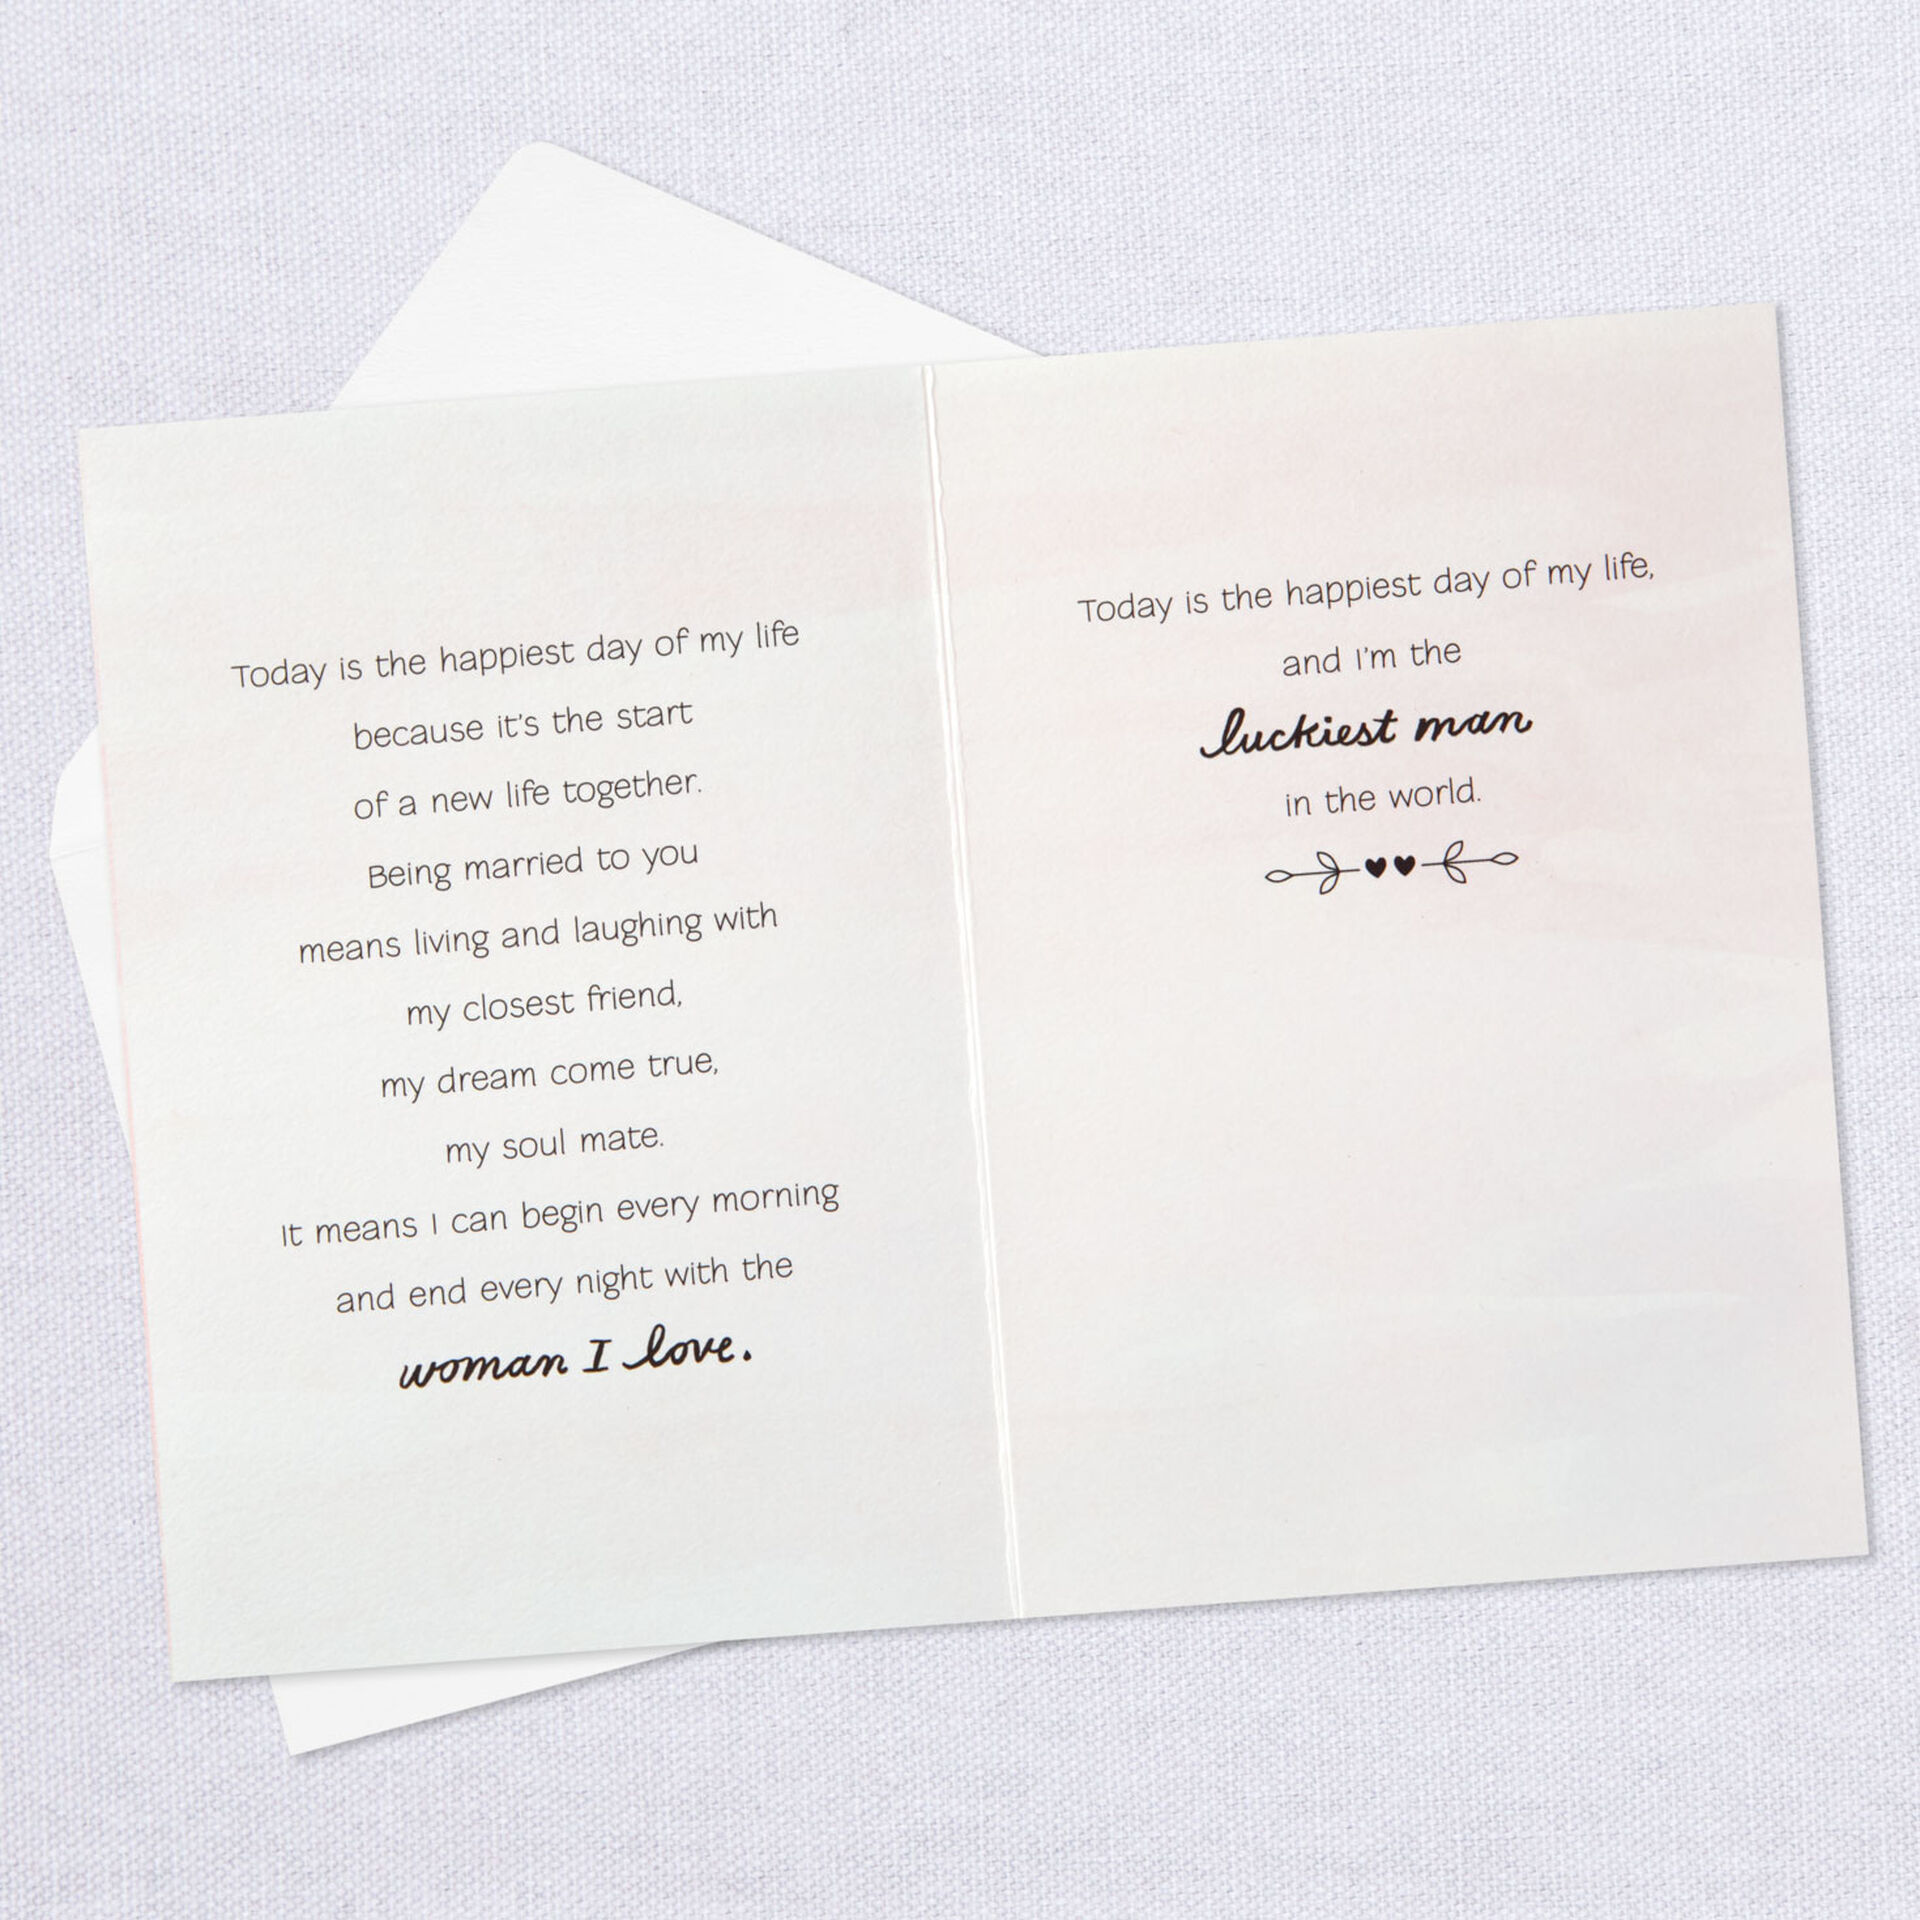 Today is the happiest day of my life
because it's the start
of a new life together.
Being married to you
means living and laughing with
my closest friend,
my dream come true,
my soul mate.
It means I can begin every morning
and end every night with the
woman I love.
Today is the happiest day of my life,
and I'm the
luckiest man
in the world.